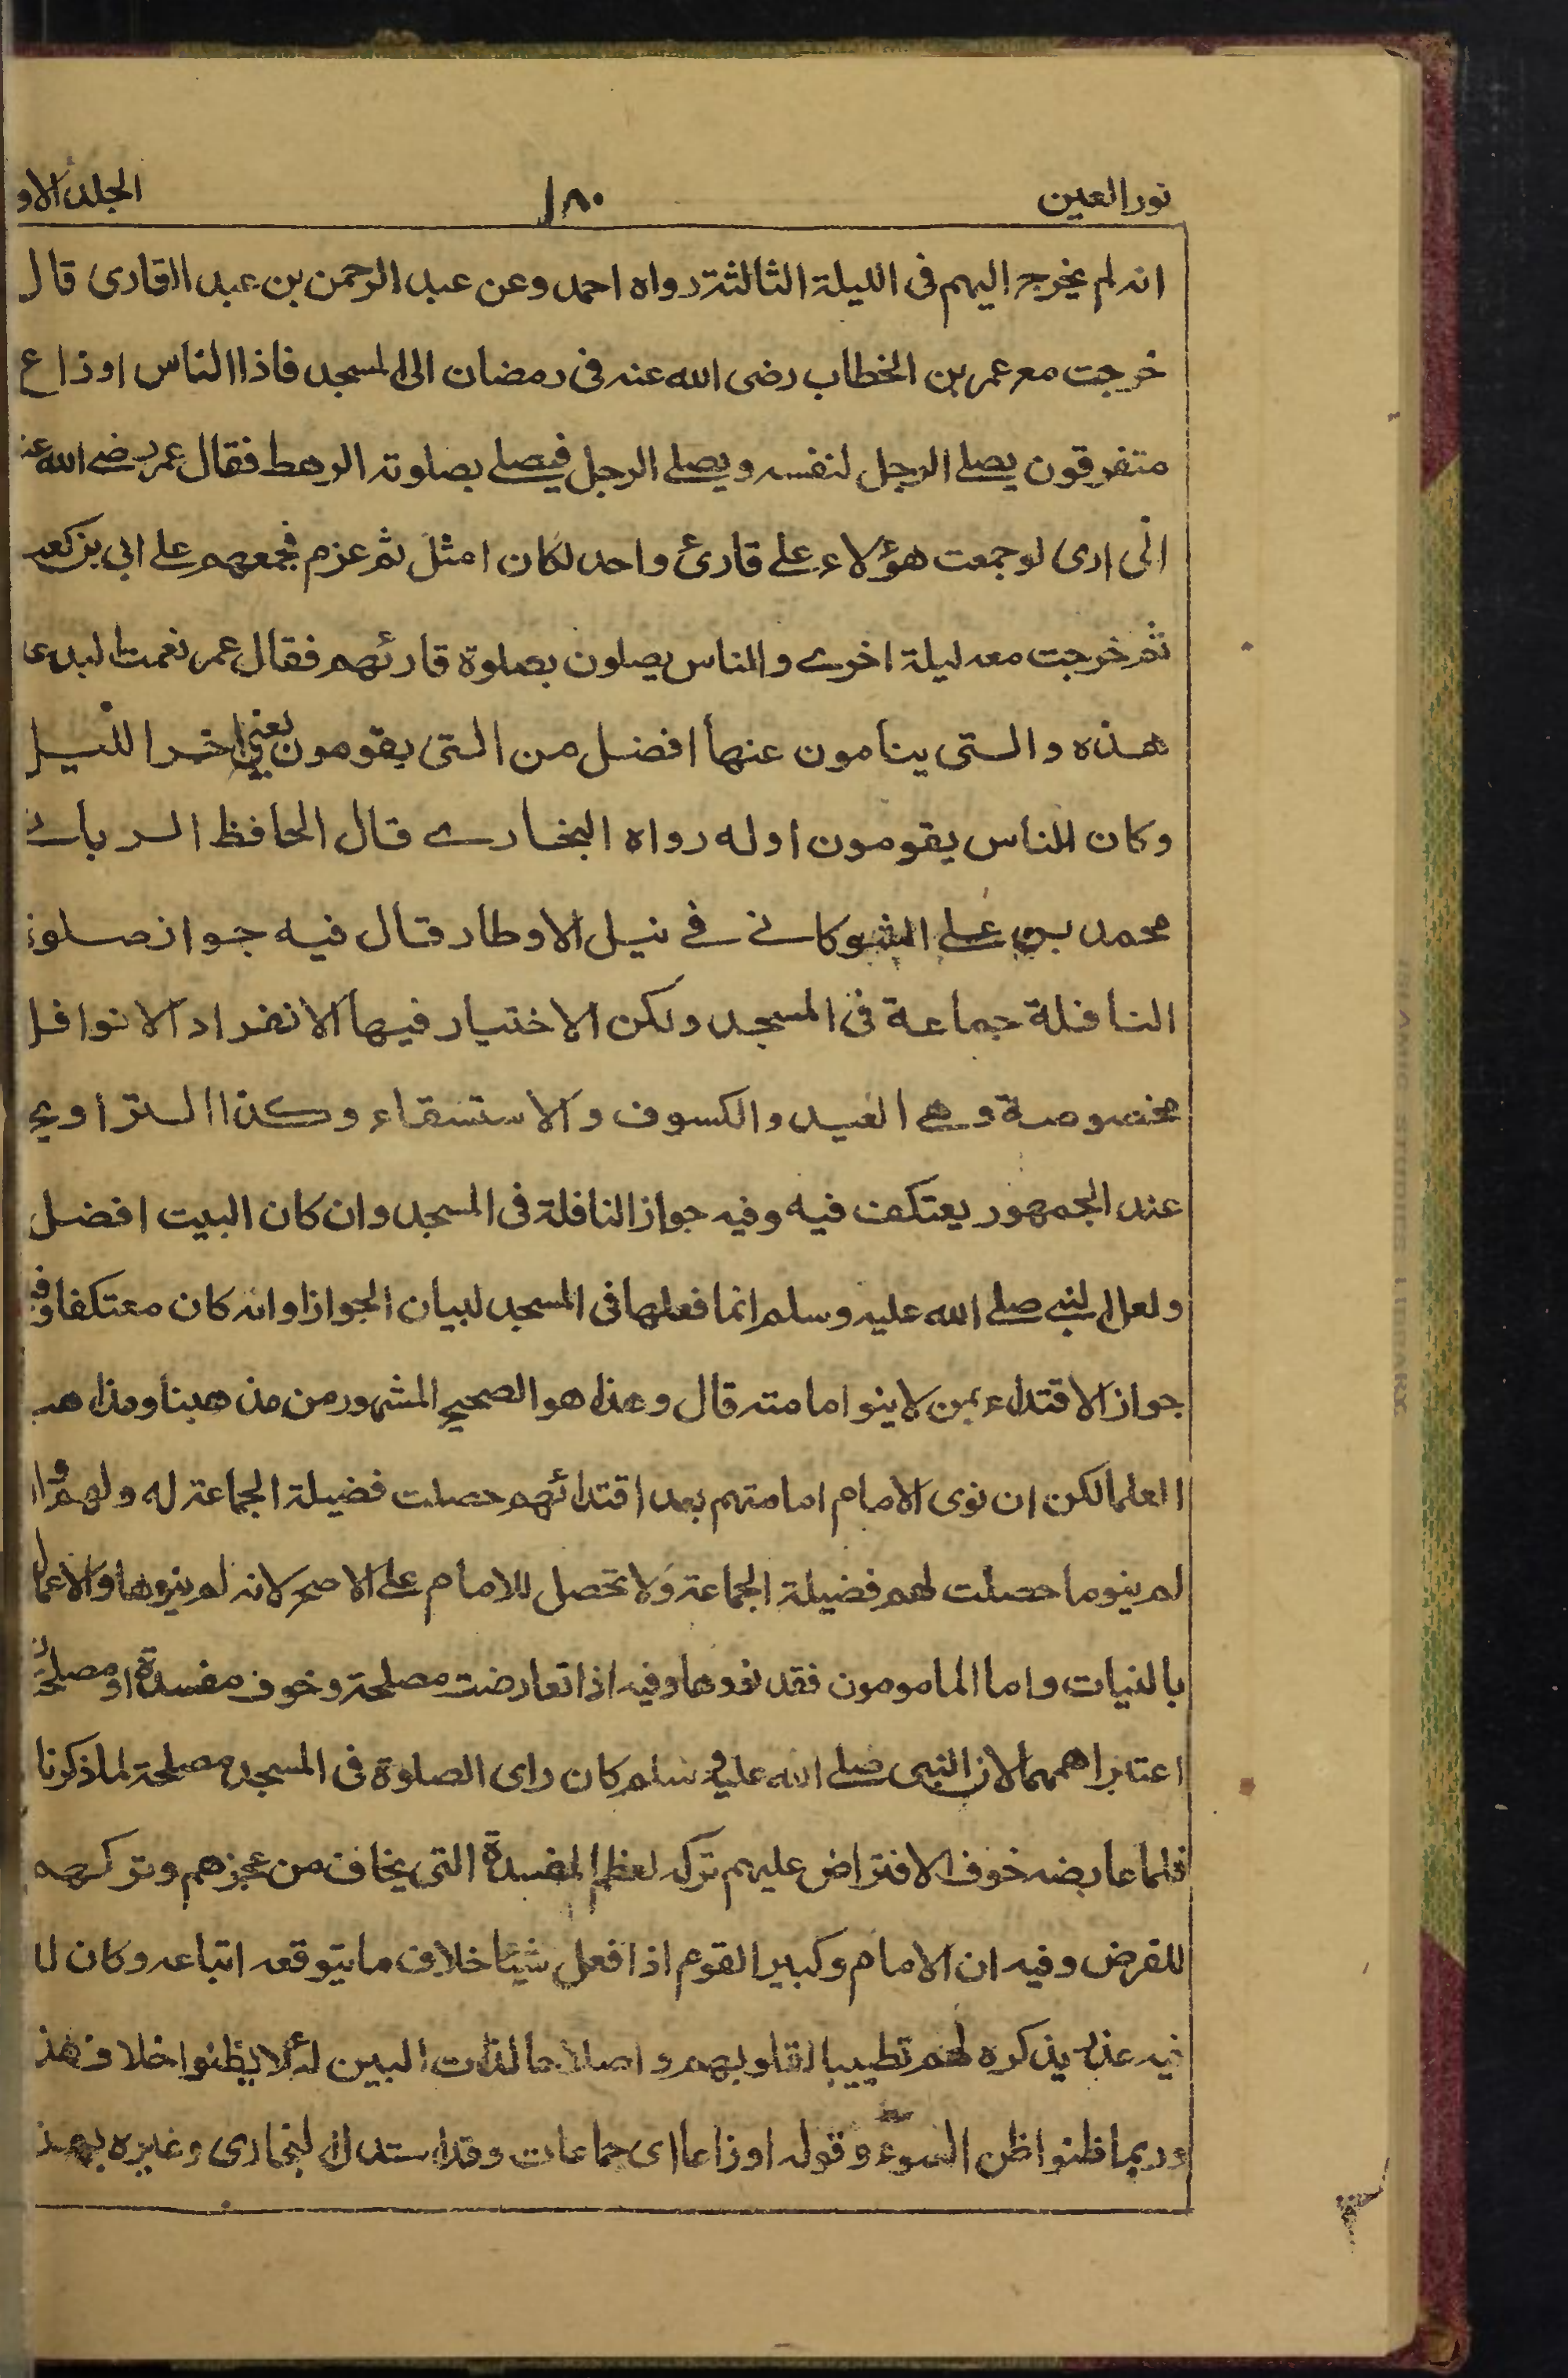 نور العين ١٨٠ الجلد الاو
انه لم يخرج اليهم فى الليلة الثالثة رواه احمد وعن عبد الرحمن بن عبد القارى قال
خرجت مع عمر بن الخطاب رضى الله عنه فى رمضان الى المسجد فاذا الناس اوزاع
متفرقون يصلے الرجل لنفسه ويصلے الرجل فيصلے بصلوته الرهط فقال عمر رضے الله عنه
انى ارى لو جمعت هؤلاء علے قارئ واحد لكان امثل ثم عزم فجمعهم علے ابى بن كعب
ثم خرجت معه ليلة اخرے والناس يصلون بصلوة قارئهم فقال عمر نعمت البدع
هذه والتى ينامون عنها افضل من التى يقومون يعنى اخر الليل
وكان الناس يقومون اوله رواه البخارے قال الحافظ الربانے
محمد بن علے الشوكانے فے نيل الاوطار قال فيه جواز صلوة
النافلة جماعة فى المسجد ولكن الاختيار فيها الانفراد الا نوافل
مخصوصة وهے العيد والكسوف والاستسقاء وكذا التراويح
عند الجمهور يعتكف فيه وفيه جواز النافلة فى المسجد وان كان البيت افضل
ولعل النبے صلے الله عليه وسلم انما فعلها فى المسجد لبيان الجواز او انه كان معتكفا وفيه
جواز الاقتداء بمن لا ينو امامته قال وهذا هو الصحيح المشهور من مذهبنا ومذاهب
العلما لكن ان نوى الامام امامتهم بعد اقتدائهم حصلت فضيلة الجماعة له ولهم وان
لم ينوها حصلت لهم فضيلة الجماعة ولا تحصل للامام علے الاصح لانه لم ينوها والاعمال
بالنيات واما المامومون فقد نووها وفيه اذا تعارضت مصلحة وخوف مفسدة او مصلحتان
اعتبر اهمهما لان النبى صلے الله عليه وسلم كان راى الصلوة فى المسجد مصلحة لما ذكرنا
فلما عارضه خوف الافتراض عليهم تركه لعظم المفسدة التى يخاف من عجزهم وتركهم
للفرض وفيه ان الامام وكبير القوم اذا فعل شيئا خلاف ما يتوقعه اتباعه وكان له
فيه عذر يذكره لهم تطييبا لقلوبهم واصلاحا لذات البين لئلا يظنوا خلاف هذ
وربما ظنوا ظن السوء وقوله اوزاعا اى جماعات وقد استدل البخارى وغيره بهذ